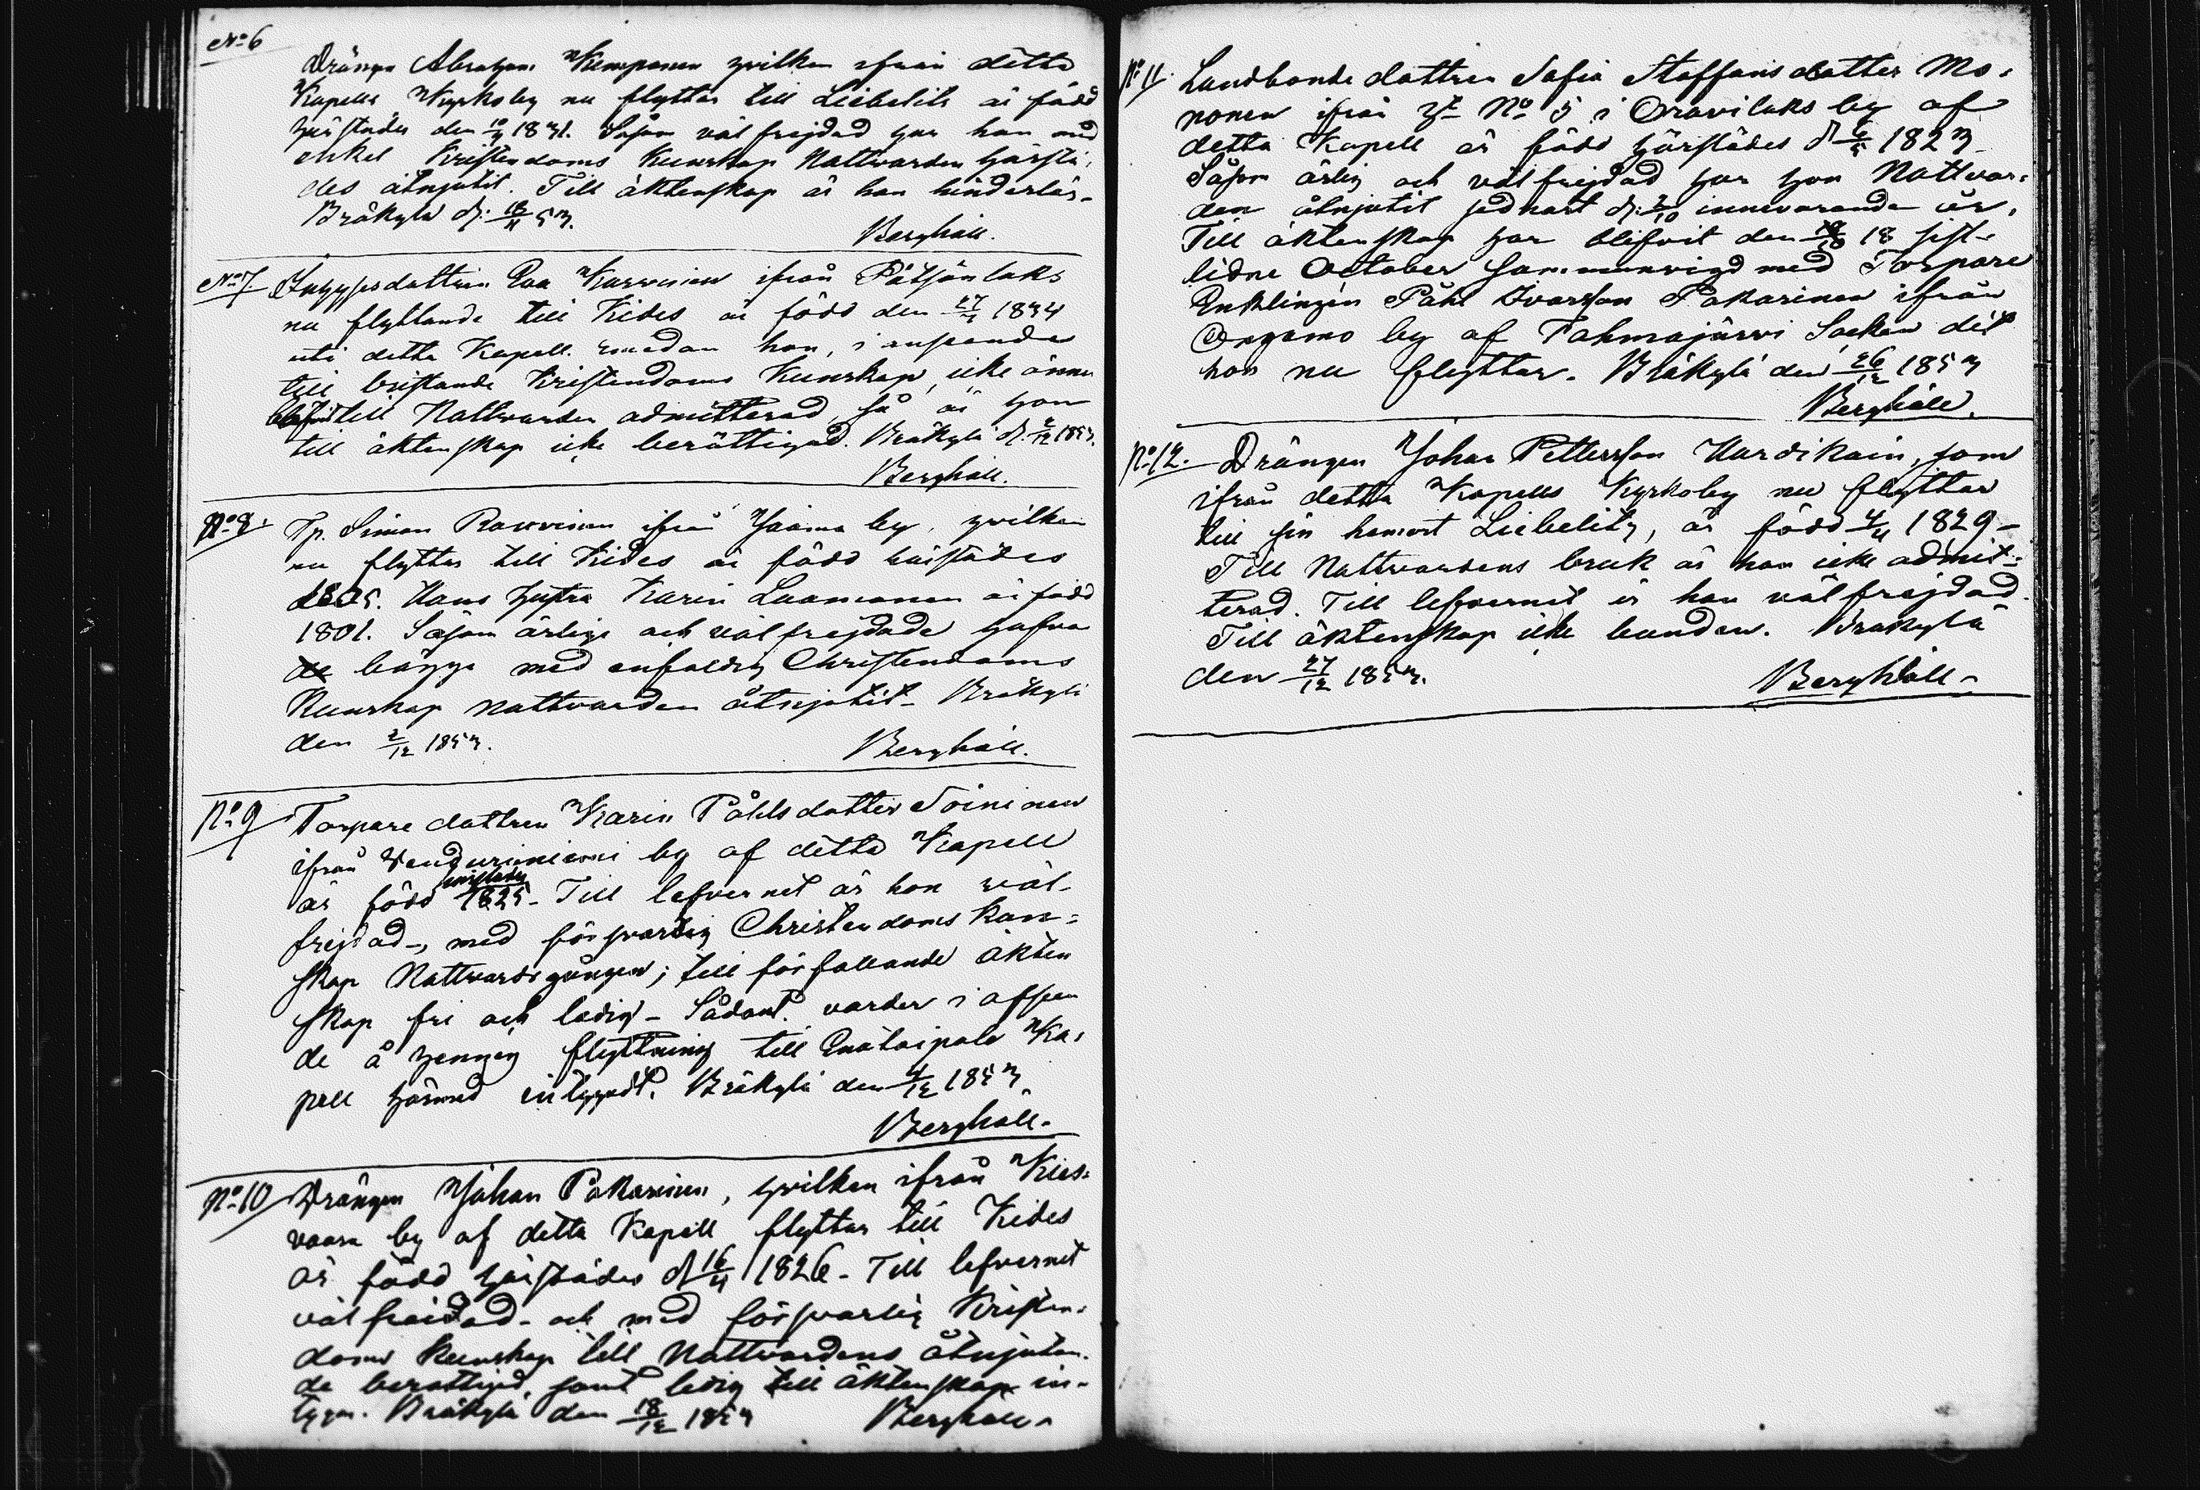 No 6
Drängen Abraham Kemponen hvilken ifrån detta
Kapells Kyrkoby nu flyttar till Liebelits är född
härstädes den 10/4 1831. Såsom väl frejdad har han med
enkel Kristendoms Kunskap Nattvarden härstä,
des åtnjutit. Till äktenskap är han hinderlös.
Bräkylä d: 18/11 53.
Berghäll.
No 7 Inhyses dottren Eva Karvinen ifrån Pötsönlaks
nu flyttande till Kides är född den 27/ 1834
uti detta Kapell. emedan hon, i anseende
till bristande Kristendoms Kunskap, icke ännu
blifvit till Nattvarden admitterad, så är hon
till äktenskap icke berättigad. Bräkylä d. 2/12 1853.
Berghäll.
No 8. Tp. Simon Ravinen ifrån Jaama by, hvilken
nu flyttar till Kides är född härstädes
1805. Hans hustru Karin Laamanen är född
1801. Såsom ärliga och väl frejdade hafva
de bägge med enfaldig Christendoms
Kunskap nattvarden åtnjutit_ Bräkylä
den 2/12 1853.
Berghäll.
No 9 Torpare dottren Karin Påhlsdotter Soininen
ifrån by af detta Kapell
härstädes
är född 1825_ Till lefvernet är hon väl-
frejdad_, med försvarlig Christendoms Kun=
skap Nattvardsgången; till förfallande äkten
skap fri och ledig_ Sådant varder i afseen
de å hennes flyttning till Enötaipale Ka,
pell härmed intygadt. Bräkylä den 4/12 1853.
Berghäll.
No 10 Drängen Johan Pakarinen, hvilken ifrån Kies=
vaara by af detta Kapell flyttar till Kides
är född härstädes d 16/4 1826_ Till lefvernet
väl freidad_ och med försvarlig Kristen=
doms Kunskap till Nattvardens åtnjutan=
de berättigad, samt ledig till äktenskap in-
tygas. Bräkylä den 18/12 1853
Berghäll.
No 11. Landbonde dottren Sofia Staffansdotter Mo=
nonen ifrån Ht No 5 i Oravilaks by af
detta Kapell är född härstädes d 6/5 1823_
Såsom ärlig och väl frejdad har hon Nattvar=
den åtnjutit sednast d: 2/10 innevarande år,
Till äktenskap har blifvit den 18 sist-
lidne October sammanvigd med Torpare
Enklingen Påhl Ivarsson Pakarinen ifrån
Onkamo by af Tohmajärvi Socken dit
hon nu flyttar. Bräkylä den 26/12 1853
Berghäll.
No 12. Drängen Johan Pettersson Hardikain, som
ifrån detta Kapells Kyrkoby nu flyttar
till sin hemort Liebelits, är född 4/4 1829_
Till Nattvardens bruk är han icke admit=
terad. Till lefvernet är han väl frejdad.
Till äktenskap icke bunden. Bräkylä
den 27/12 1853.
Berghäll_